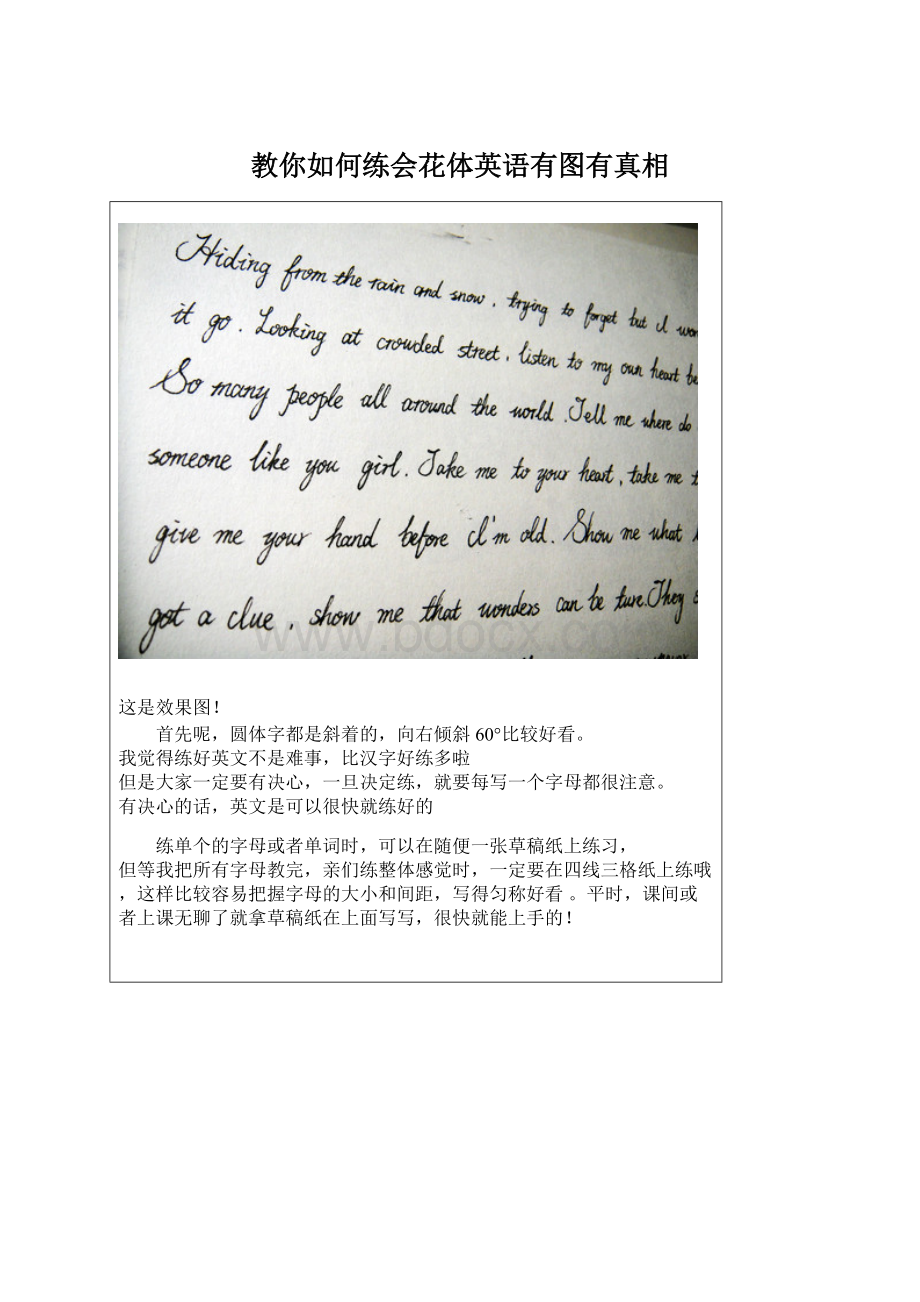 教你如何练会花体英语有图有真相
Hiding from the rain and snow, trying to forget but I won
it go. Looking at crowded street, listen to my own heart be
So many people all around the world. Tell me where do
someone like you girl. Take me to your heart, take me t
give me your hand before I'm old. Show me what l
got a clue, show me that wonders can be ture. They s
www.bdocx.com
这是效果图！
首先呢，圆体字都是斜着的，向右倾斜60°比较好看。
我觉得练好英文不是难事，比汉字好练多啦
但是大家一定要有决心，一旦决定练，就要每写一个字母都很注意。
有决心的话，英文是可以很快就练好的
练单个的字母或者单词时，可以在随便一张草稿纸上练习，
但等我把所有字母教完，亲们练整体感觉时，一定要在四线三格纸上练哦
，这样比较容易把握字母的大小和间距，写得匀称好看 。平时，课间或
者上课无聊了就拿草稿纸在上面写写，很快就能上手的！